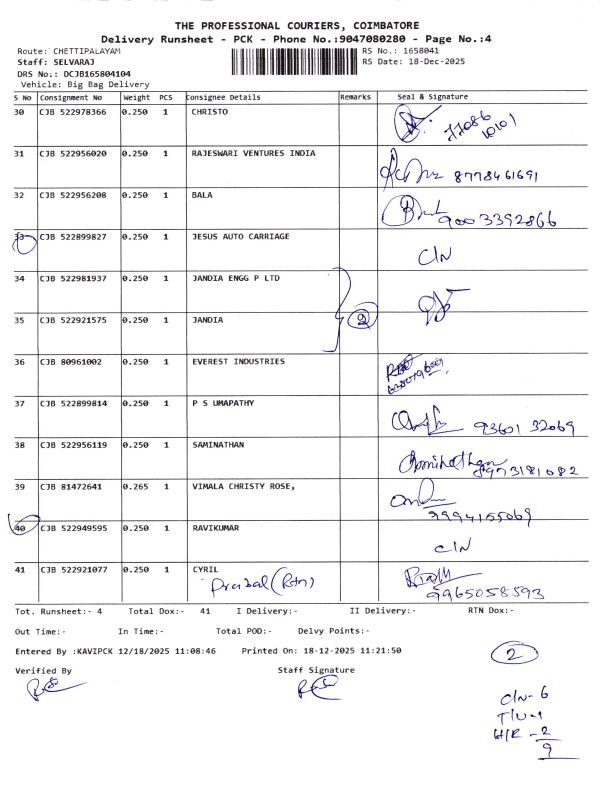 THE PROFESSIONAL COURIERS, COIMBATORE
Delivery Runsheet - PCK - Phone No.:9047080280 - Page No.:4
Route: CHETTIPALAYAM RS No.: 1658041
Staff: SELVARAJ RS Date: 18-Dec-2025
DRS No.: DCJB165804104
Vehicle: Big Bag Delivery
S No Consignment No Weight PCS Consignee Details Remarks Seal & Signature
30 CJB 522978366 0.250 1 CHRISTO 77086
10101
31 CJB 522956020 0.250 1 RAJESWARI VENTURES INDIA 8778461691
32 CJB 522956208 0.250 1 BALA 9003392866
33 CJB 522899827 0.250 1 JESUS AUTO CARRIAGE C/N
34 CJB 522981937 0.250 1 JANDIA ENGG P LTD
35 CJB 522921575 0.250 1 JANDIA 2
36 CJB 80961002 0.250 1 EVEREST INDUSTRIES
37 CJB 522899814 0.250 1 P S UMAPATHY 93601 32069
38 CJB 522956119 0.250 1 SAMINATHAN
39 CJB 81472641 0.265 1 VIMALA CHRISTY ROSE,
9994155069
40 CJB 522949595 0.250 1 RAVIKUMAR C/N
41 CJB 522921077 0.250 1 CYRIL
(Rtn) 9965058593
Tot. Runsheet:- 4 Total Dox:- 41 I Delivery:- II Delivery:- RTN Dox:-
Out Time:- In Time:- Total POD:- Delvy Points:-
Entered By :KAVIPCK 12/18/2025 11:08:46 Printed On: 18-12-2025 11:21:50
2
Verified By Staff Signature
C/N- 6
T/U-1
H/R - 2
9